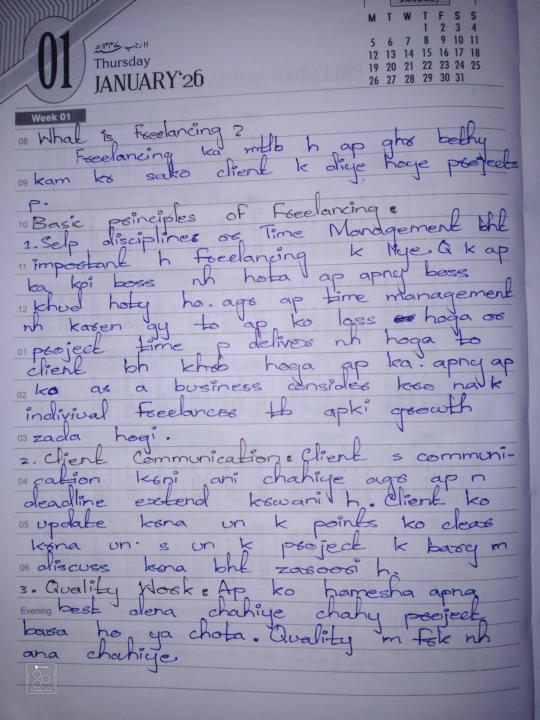 JANUARY
M T W T F S S
1 2 3 4
5 6 7 8 9 10 11
12 13 14 15 16 17 18
19 20 21 22 23 24 25
26 27 28 29 30 31
01
Thursday
JANUARY'26
Week 01
08 What is Freelancing ?
Freelancing ka mtlb h ap ghr bethy
09 kam kr sako client k diye hoye projects
p.
10 Basic principles of Freelancing :
1. Self disciplines or Time Management bht
11 important h Freelancing k liye. Q k ap
ka koi boss nh hota ap apny boss
12 khud hoty ho. agr ap time management
nh karen gy to ap ko loss hoga or
01 project time p deliver nh hoga to
client bh khrb hoga ap ka. apny ap
02 ko as a business consider kro na k
indiviual freelancer tb apki growth
03 zada hogi.
2. Client Communication: Client s communi-
04 cation krni ani chahiye agr ap n
deadline extend krwani h. Client ko
05 update krna un k points ko clear
krna un s un k project k bary m
06 discuss krna bht zaroori h.
3. Quality Work : Ap ko hamesha apna
Evening best dena chahiye chahy project
bara ho ya chota. Quality m frk nh
ana chahiye